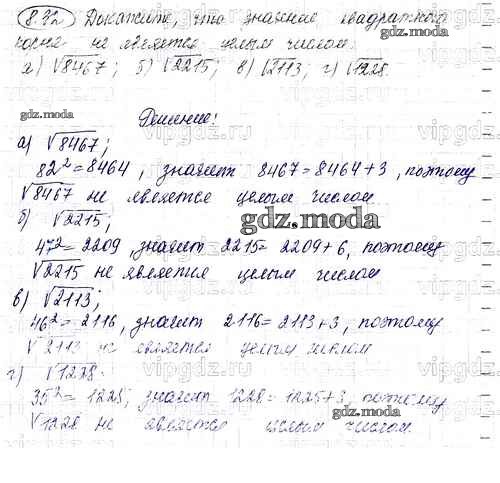 8.32 Докажите, что значение квадратного
корня не является целым числом:
а) √8467; б) √2215; в) √2113; г) √1228.
gdz.moda
Решение!
а) √8467;
82² = 8464, значит 8467 = 8464 + 3, поэтому
√8467 не является целым числом
б) √2215;
gdz.moda
47² = 2209, значит 2215 = 2209 + 6, поэтому
√2215 не является целым числом
в) √2113;
46² = 2116, значит 2116 = 2113 + 3, поэтому
√2113 не является целым числом
г) √1228.
35² = 1225, значит 1228 = 1225 + 3, поэтому
√1228 не является целым числом.
gdz.moda